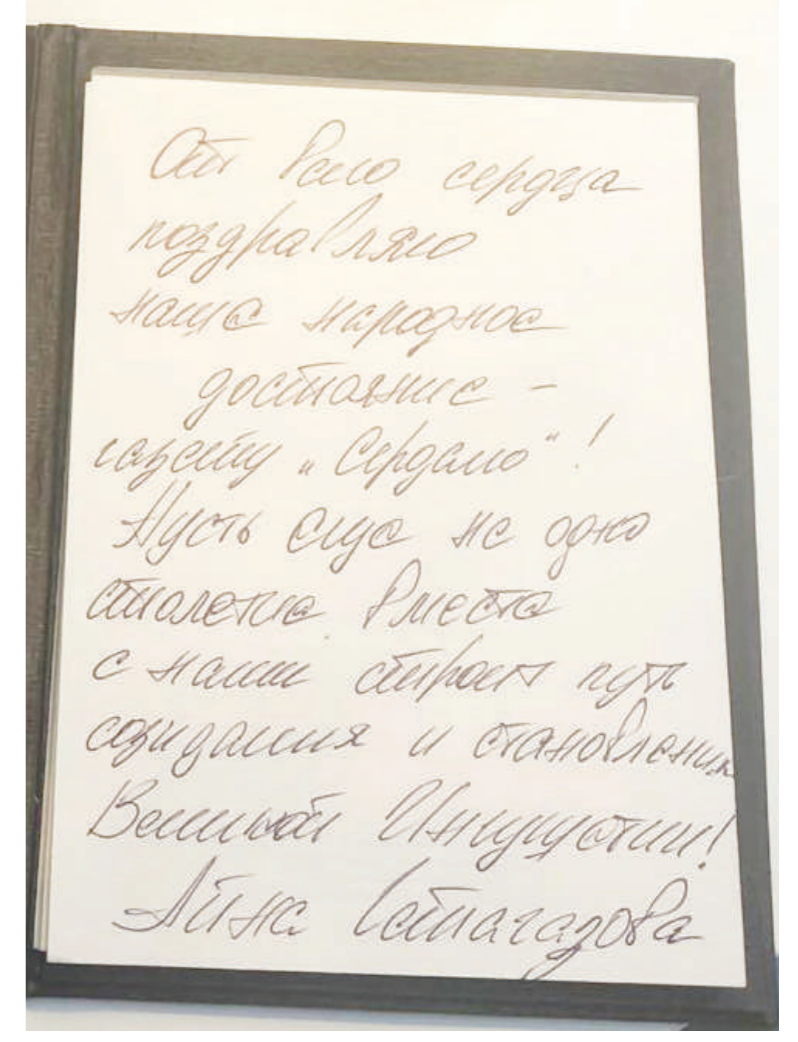 От всего сердца
поздравляю
наше народное
достояние -
газету „Сердало“!
Пусть еще не одно
столетие вместе
с нами строит путь
созидания и становления
Великой Ингушетии!